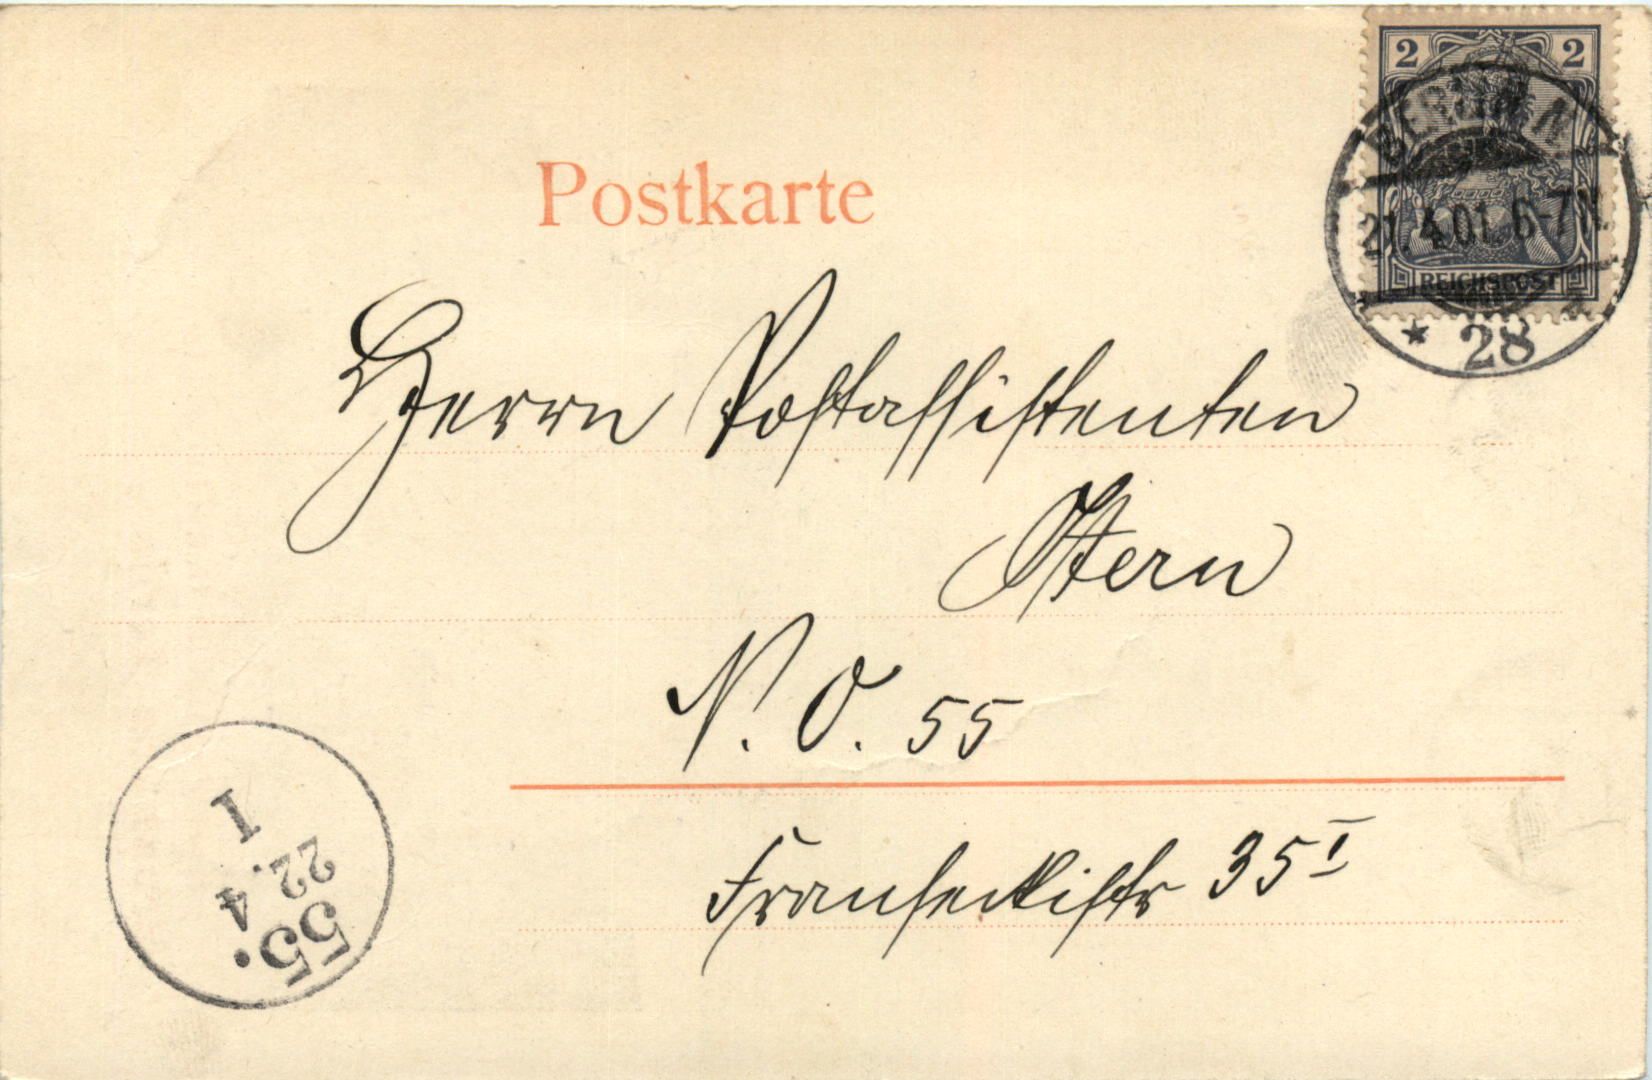 2 2
BERLIN
21.4.01. 6-7N.
REICHSPOST
* 28
Postkarte
Herrn Postassistenten
Stern
N. O. 55
Franseckistr 35 I
55.
22. 4
1